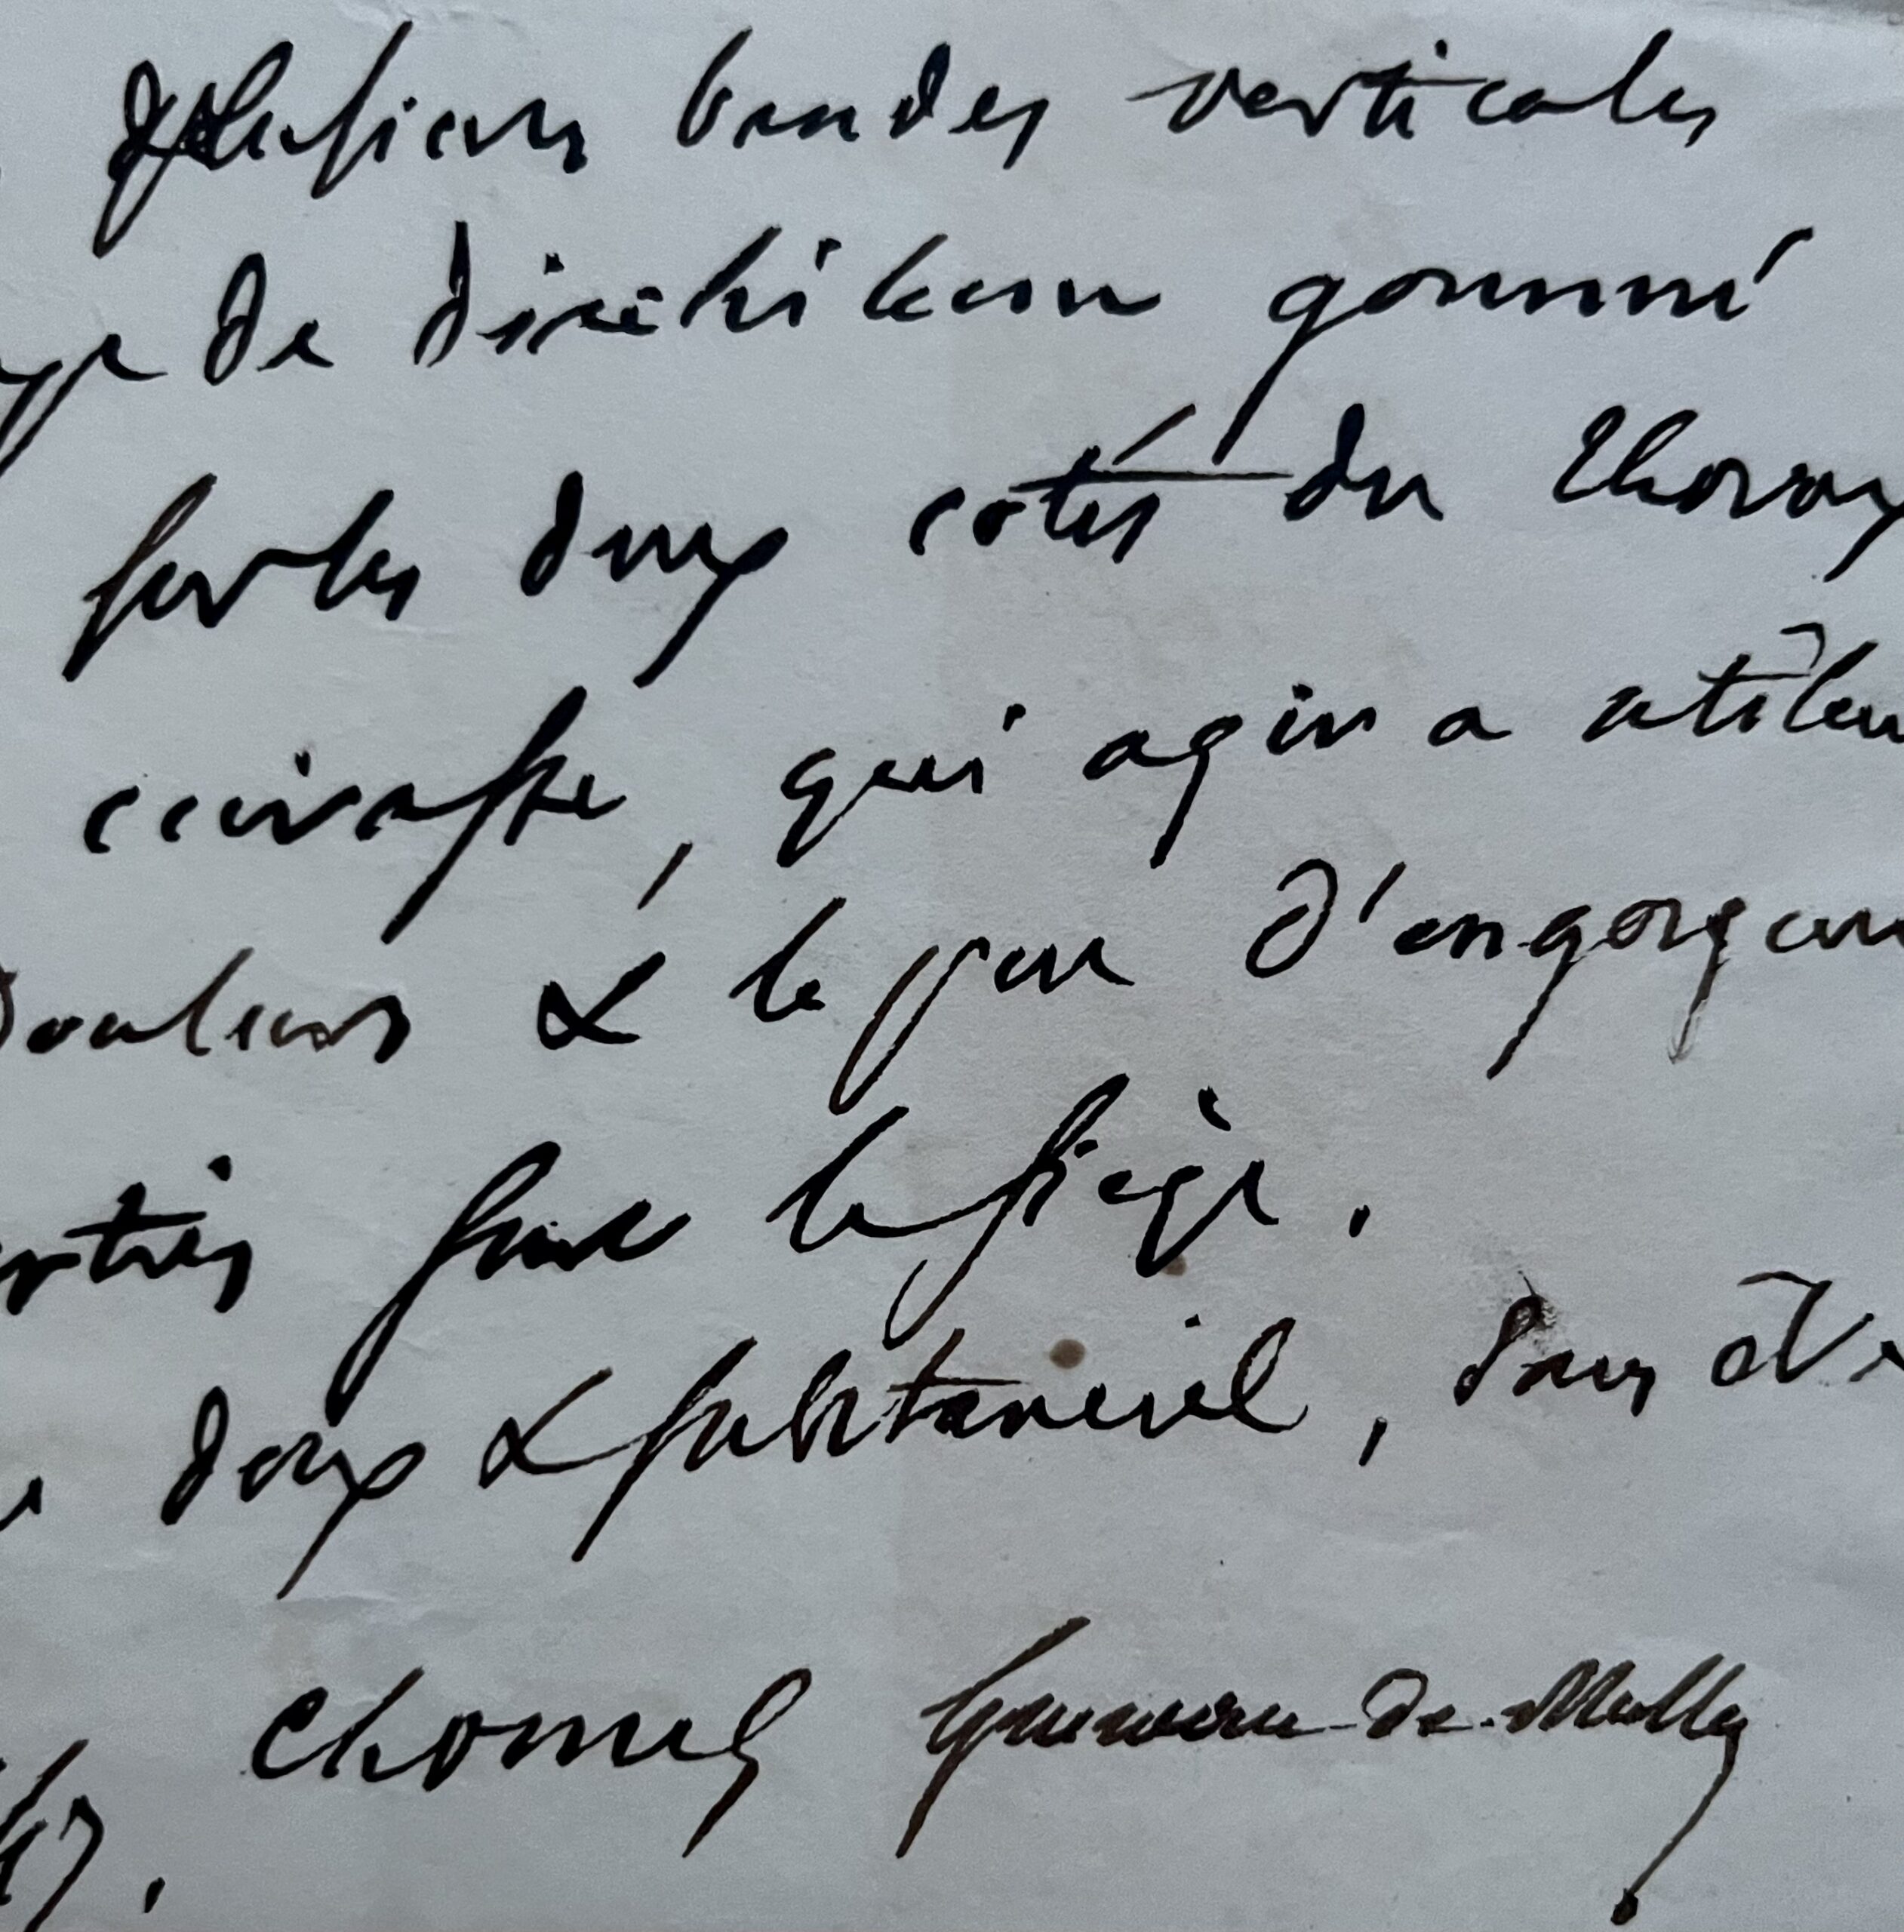 plusieurs bandes verticales
de diachilum gommé
sur les deux cotés du thorax
cuirasse, qui agira utilem
douleurs & le peu d'engorgem
sont le siège.
doux & substantiel, dans
Chomel Gueneau de Mussy